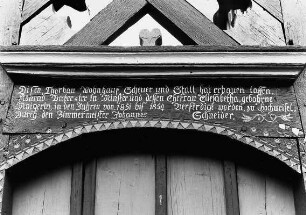 Diesen Thorbau Wohnhaus, Scheuer und Stall hat erbauen lassen,
Konrad in Münster und dessen Ehefrau Elisabetha, gebohrne
in den Jahren von 1851 bis 1854. Verfertigt worden, zu
Durch den Zimmermeister Johannes Schneider.